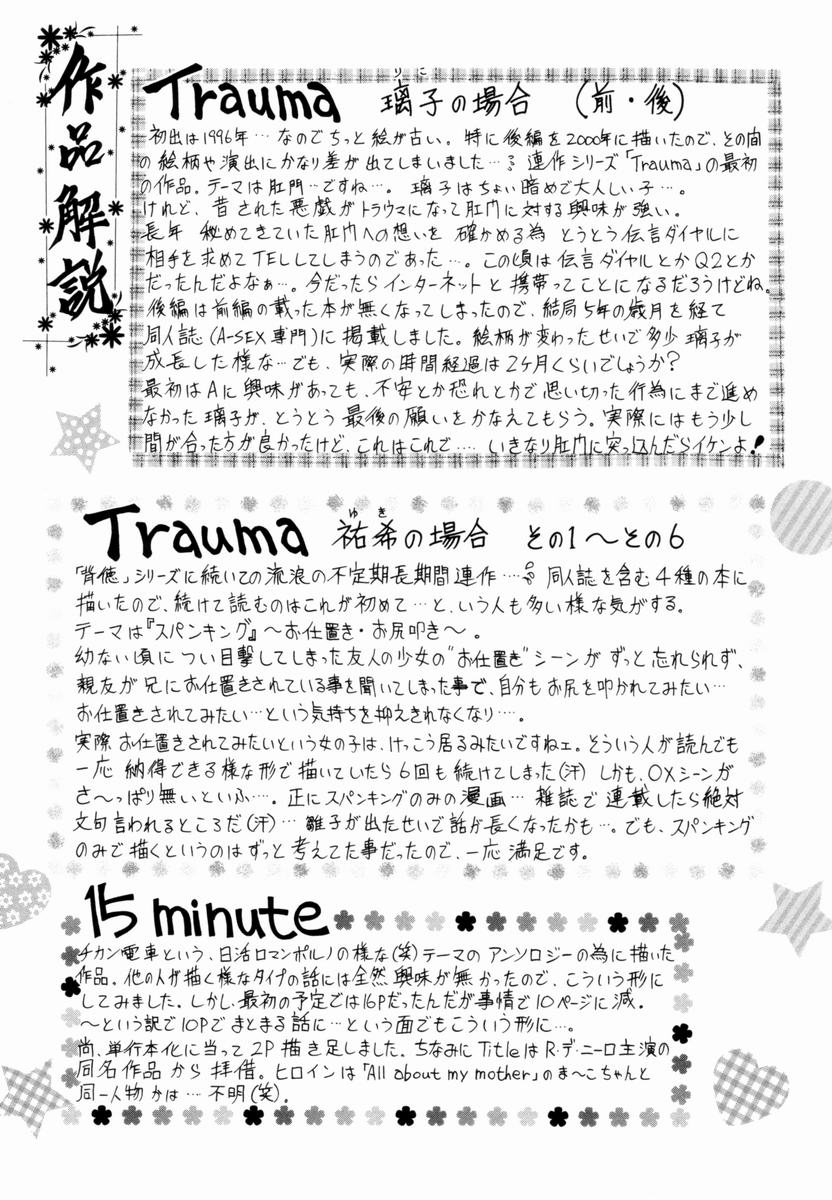 作品解説
Trauma 璃子の場合 (前・後)
りこ
初出は1996年…なのでちっと絵が古い。特に後編を2000年に描いたので、その間
の絵柄や演出にかなり差が出てしまいました…。連作シリーズ「Trauma」の最初
の作品。テーマは肛門…ですね…。璃子はちょい暗めで大人しい子…。
けれど、昔された悪戯がトラウマになって肛門に対する興味が強い。
長年 秘めてきていた肛門への想いを 確かめる為 とうとう伝言ダイヤルに
相手を求めてTELしてしまうのであった…。この頃は伝言ダイヤルとかQ2とか
だったんだよなぁ…。今だったらインターネットと携帯ってことになるだろうけどね。
後編は前編の載った本が無くなってしまったので、結局5年の歳月を経て
同人誌(A-SEX専門)に掲載しました。絵柄が変わったせいで多少璃子が
成長した様な…でも、実際の時間経過は2ヶ月くらいでしょうか?
最初はAに興味があっても、不安とか恐れとかで思い切った行為にまで進め
なかった璃子が、とうとう最後の願いをかなえてもらう。実際にはもう少し
間が合った方が良かったけど、これはこれで…. いきなり肛門に突っ込んだらイケンよ!
Trauma 祐希の場合 その1〜その6
ゆき
「背徳」シリーズに続いての流浪の不定期長期間連作…。同人誌を含む4種の本に
描いたので、続けて読むのはこれが初めて…と、いう人も多い様な気がする。
テーマは『スパンキング』〜お仕置き・お尻叩き〜。
幼ない頃に つい目撃してしまった友人の少女の"お仕置き"シーンが ずっと忘れられず、
親友が兄にお仕置きされている事を聞いてしまった事で、自分もお尻を叩かれてみたい…
お仕置きされてみたい…という気持ちを抑えきれなくなり…。
実際お仕置きされてみたいという女の子は、けっこう居るみたいですねェ。そういう人が読んでも
一応 納得できる様な形で描いていたら6回も続けてしまった(汗) しかも、OXシーンが
さ〜っぱり無いといふ…。正にスパンキングのみの漫画…雑誌で連載したら絶対
文句言われるところだ(汗)…雛子が出たせいで話が長くなったかも…。でも、スパンキング
のみで描くというのはずっと考えてた事だったので、一応満足です。
15 minute
チカン電車という、日活ロマンポルノの様な(笑)テーマのアンソロジーの為に描いた
作品。他の人が描く様なタイプの話には全然興味が無かったので、こういう形に
してみました。しかし、最初の予定では16Pだったんだが事情で10ページに減.
〜という訳で10Pでまとまる話に…という面でもこういう形に…。
尚、単行本化に当って2P描き足しました。ちなみにTitleはR・デ・ニーロ主演の
同名作品から拝借。ヒロインは「All about my mother」のま〜こちゃんと
同一人物かは…不明(笑)。